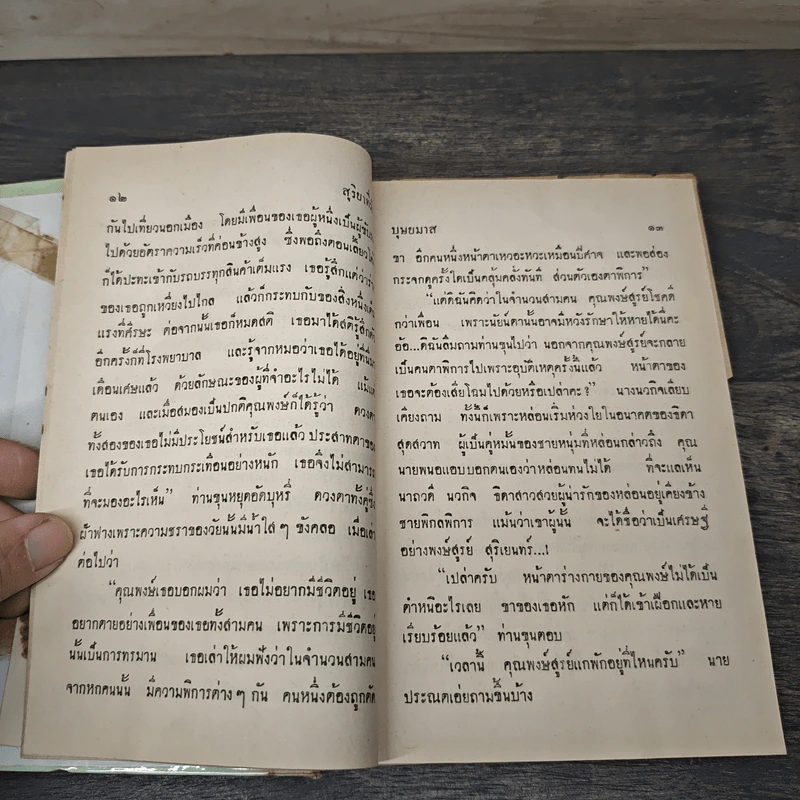 ๑๒
สุริย
กันไปเที่ยวนอกเมือง โดยมีเพื่อนของเธอผู้หนึ่งเป็นผู้ขับ
ไปด้วยอัตราความเร็วที่ค่อนข้างสูง ซึ่งพอถึงตอนเลี้ยว
ก็ได้ปะทะเข้ากับรถบรรทุกสินค้าเต็มแรง เธอรู้สึกแต่ว่า
ของเธอถูกเหวี่ยงไปไกล แล้วก็กระทบกับของสิ่งหนึ่ง
แรงที่ศีรษะ ต่อจากนั้นเธอก็หมดสติ เธอมาได้สติรู้สึก
อีกครั้งก็ที่โรงพยาบาล และรู้จากหมอว่าเธอได้อยู่ที่นั่น
เดือนเศษแล้ว ด้วยลักษณะของผู้ที่จำอะไรไม่ได้ แม้แต่
ตนเอง และเมื่อสมองเป็นปกติคุณพงษ์ก็ได้รู้ว่า ดวงตา
ทั้งสองของเธอไม่มีประโยชน์สำหรับเธอแล้ว ประสาทตาของ
เธอได้รับการกระทบกระเทือนอย่างหนัก เธอจึงไม่สามารถ
ที่จะมองอะไรเห็น” ท่านขุนหยุดอัดบุหรี่ ดวงตาทั้งคู่ซึ่ง
ฝ้าฟางเพราะความชราของวัยนั้นมีน้ำใส ๆ ขังคลอ เมื่อเล่า
ต่อไปว่า
“คุณพงษ์เธอบอกผมว่า เธอไม่อยากมีชีวิตอยู่ เธอ
อยากตายอย่างเพื่อนของเธอทั้งสามคน เพราะการมีชีวิตอยู่
นั้นเป็นการทรมาน เธอเล่าให้ผมฟังว่าในจำนวนสามคน
จากหกคนนั้น มีความพิการต่าง ๆ กัน คนหนึ่งต้องถูกตัด
บุษยมาส
๑๓
ขา อีกคนหนึ่งหน้าตาเหวอะหวะเหมือนปีศาจ และพอส่อง
กระจกดูครั้งใดเป็นคลุ้มคลั่งทันที ส่วนตัวเองตาพิการ”
“แต่ดิฉันคิดว่าในจำนวนสามคน คุณพงษ์สูรย์โชคดี
กว่าเพื่อน เพราะนัยน์ตานั้นอาจมีหวังรักษาให้หายได้นี่คะ
อ้อ...ดิฉันลืมถามท่านขุนไปว่า นอกจากคุณพงษ์สูรย์จะกลาย
เป็นคนตาพิการไปเพราะอุบัติเหตุครั้งนี้แล้ว หน้าตาของ
เธอจะต้องเสียโฉมไปด้วยหรือเปล่าคะ?” นางนวกิจเลียบ
เคียงถาม ทั้งนี้ก็เพราะหล่อนเริ่มห่วงใยในอนาคตของธิดา
สุดสวาท ผู้เป็นคู่หมั้นของชายหนุ่มที่หล่อนกล่าวถึง คุณ
นายพนอแอบบอกตนเองว่าหล่อนทนไม่ได้ ที่จะแลเห็น
นาถวดี นวกิจ ธิดาสาวสวยผู้น่ารักของหล่อนอยู่เคียงข้าง
ชายพิกลพิการ แม้นว่าเขาผู้นั้น จะได้ชื่อว่าเป็นเศรษฐี
อย่างพงษ์สูรย์ สุริเยนทร์...!
“เปล่าครับ หน้าตาร่างกายของคุณพงษ์ไม่ได้เป็น
ตำหนิอะไรเลย ขาของเธอหัก แต่ก็ได้เข้าเฝือกและหาย
เรียบร้อยแล้ว” ท่านขุนตอบ
“เวลานี้ คุณพงษ์สูรย์แกพักอยู่ที่ไหนครับ” นาย
ประณตเอ่ยถามขึ้นบ้าง